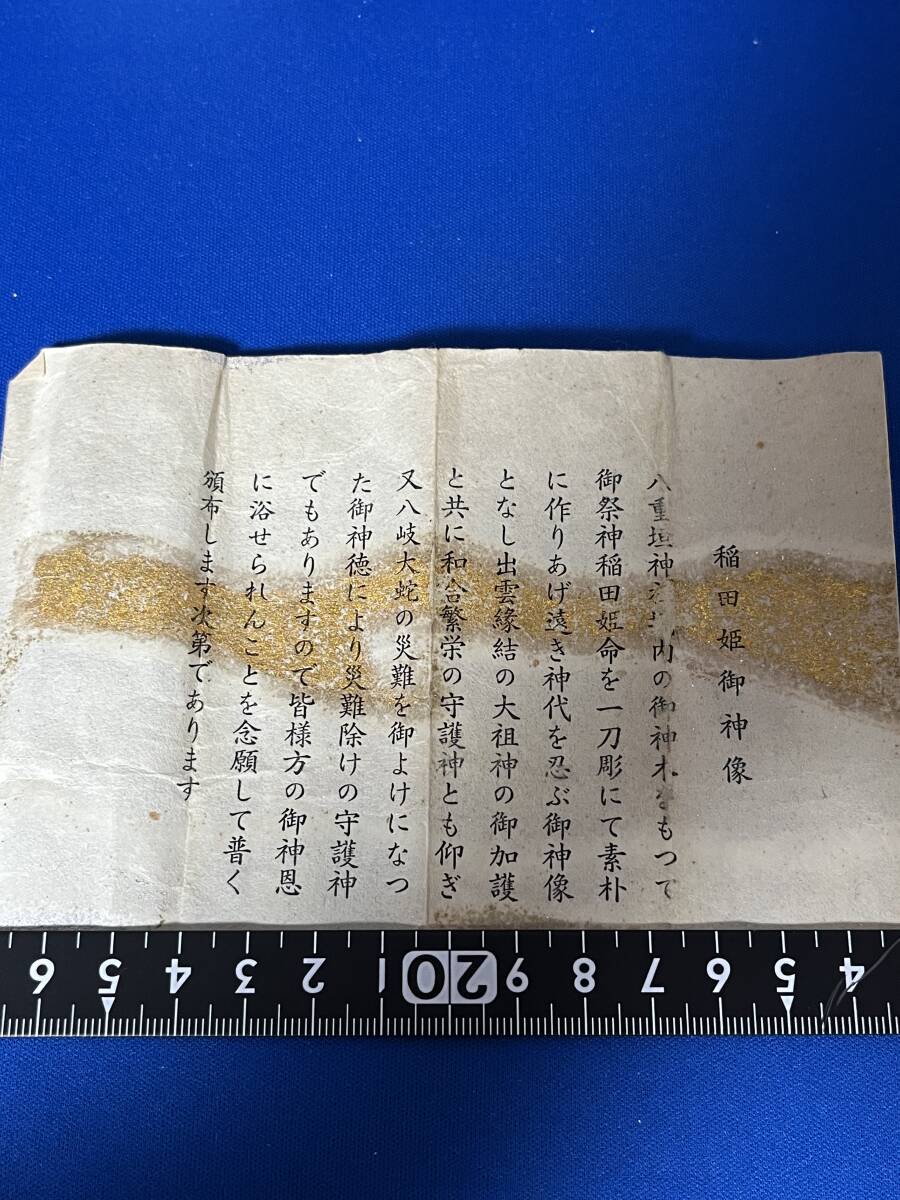 稲田姫御神像
八重垣神社境内の御神木をもつて
御祭神稲田姫命を一刀彫にて素朴
に作りあげ遠き神代を忍ぶ御神像
となし出雲縁結の大祖神の御加護
と共に和合繁栄の守護神とも仰ぎ
又八岐大蛇の災難を御よけになつ
た御神徳により災難除けの守護神
でもありますので皆様方の御神恩
に浴せられんことを念願して普く
頒布します次第であります
6 5 4 3 2 1 20 9 8 7 6 5 4